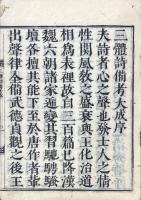 三體詩備考大成序
夫詩者心之聲也發士人之情
性關風教之盛衰與王化治道
相為表裡故自三百篇已降漢
魏六朝諸家遞變其習騷騷
壇各擅其能下至於唐作者輩
出聲律全備武德貞觀之後王